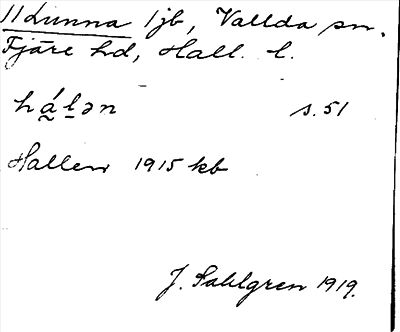 11 Lunna 1 jb, Vallda sn.
Fjäre hd, Hall. l.
hálən s. 51
Hallen 1915 kb
J. Sahlgren 1919.